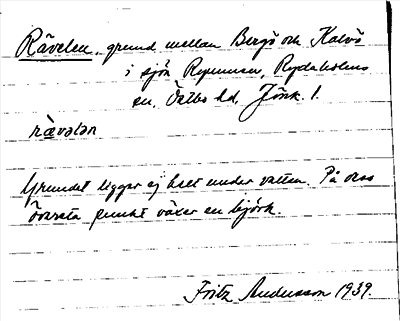 Rävelen, grund mellan Bergö och Kalvö
i sjön Rymmen, Rydaholms
sn, Västbo hd, Jönk. l.
rävələn
Grundet ligger ej helt under vatten. På dess
översta punkt växer en björk.
Fritz Andersson 1939.